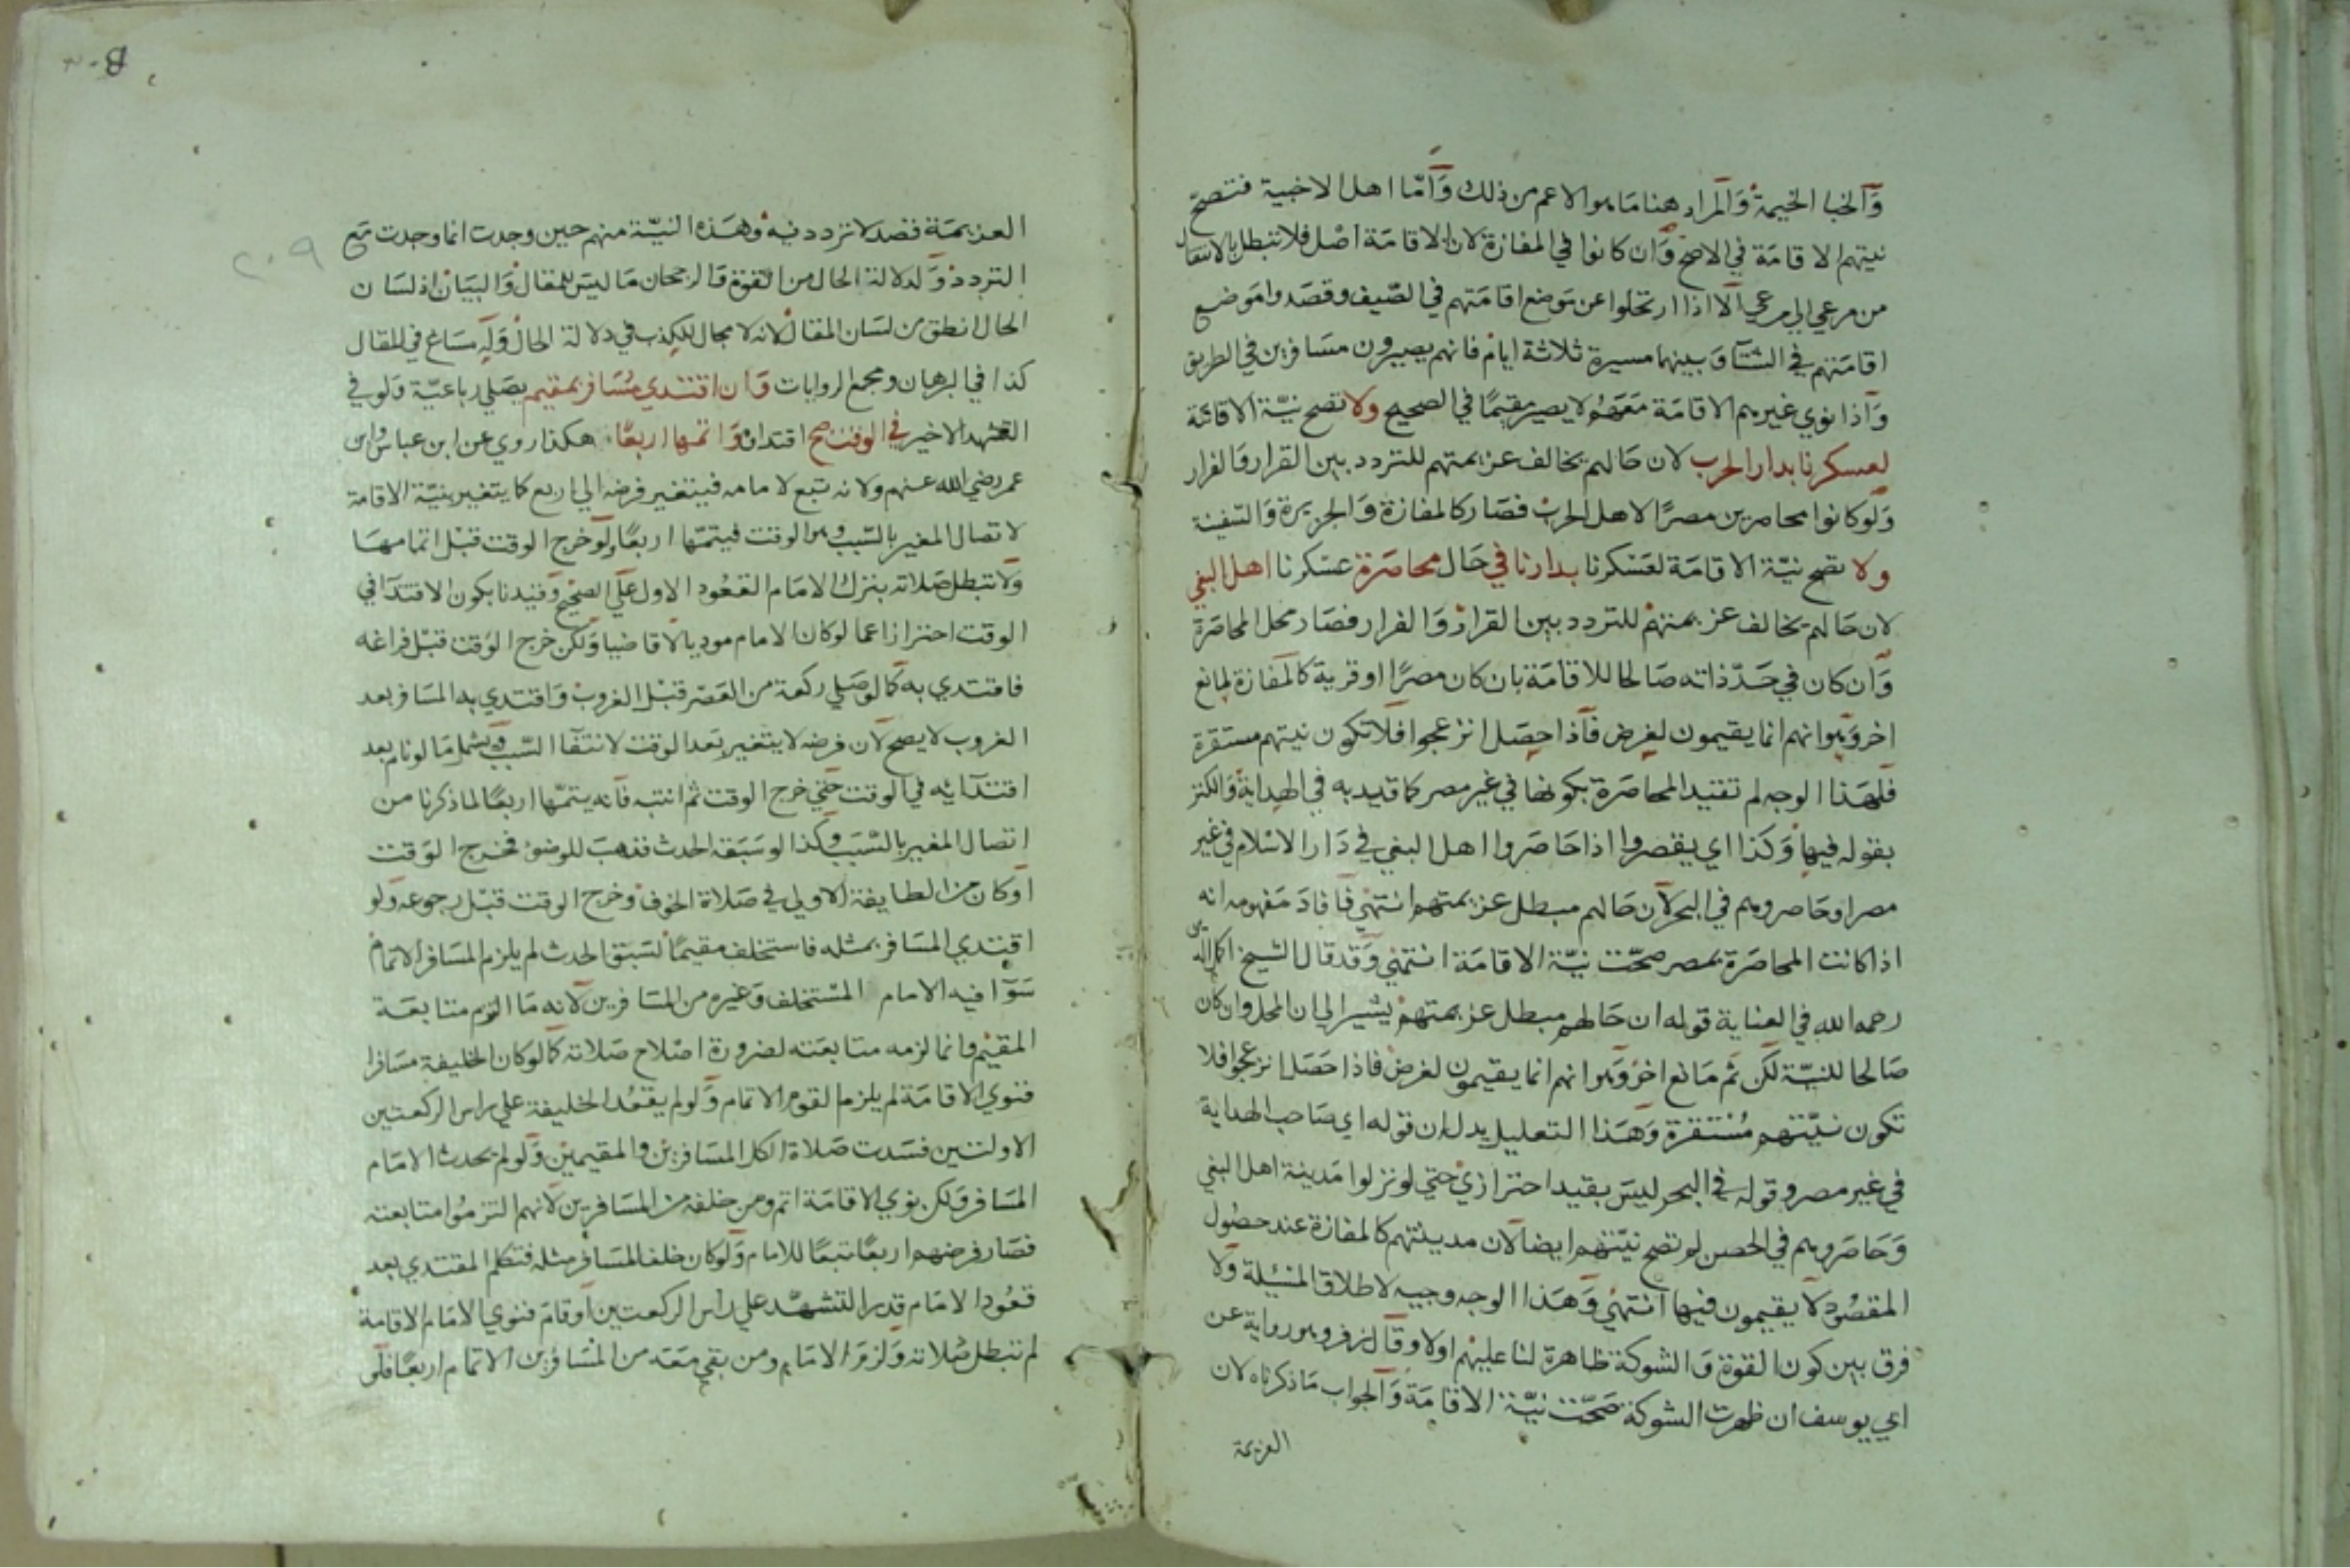 وآلخبا الخيمة وآلمراد هنا ما هو الاعم من ذلك وأما اهل الاخبية فتصح
نيتهم الاقامة في الاصح وان كانوا في المفازة لان الاقامة اصل فلا تبطل بالانتقال
من مرعي الي مرعي آلا اذا ارتحلوا عن موضع اقامتهم في الصيف وقصدوا موضع
اقامتهم في الشتآ وبينهما مسيرة ثلاثة ايام فانهم يصيرون مسافرين في الطريق
وآذا نوي غيرهم الاقامة معهم لا يصير مقيما في الصحيح ولا تصح نية الاقامة
لعسكرنا بدار الحرب لان حالهم يخالف عزيمتهم للتردد بين القرار والفرار
ولو كانوا محاصرين مصرا لاهل الحرب فصار كالمفازة والجزيرة والسفينة
ولا تصح نية الاقامة لعسكرنا بدارنا في حال محاصرة عسكرنا اهل البغي
لان حالهم يخالف عزيمتهم للتردد بين القرار والفرار فصار محل المحاصرة
وآن كان في حد ذاته صالحا للاقامة بان كان مصرا او قرية كالمفازة لمانع
اخر وهو انهم انما يقيمون لغرض فآذا حصل انزعجوا فلا تكون نيتهم مستقرة
فلهذا الوجه لم تقيد المحاصرة بكونها في غير مصر كما قيد به في الهداية والكنز
بقوله فيها وكذا اي يقصروا اذا حاصروا اهل البغي في دار الاسلام في غير
مصر او حاصروهم في البحر لآن حالهم مبطل عزيمتهم انتهي فآفاد مفهومه انه
اذا كانت المحاصرة بمصر صحت نية الاقامة انتهي وقد قال الشيخ اكمل الدين
رحمه الله في العناية قوله ان حالهم مبطل عزيمتهم يشير الي ان المحل وان كان
صالحا للنية لكن ثم مانع اخر وهو انهم انما يقيمون لغرض فاذا حصل انزعجوا فلا
تكون نيتهم مستقرة وهذا التعليل يدل ان قوله اي صاحب الهداية
في غير مصر وقوله في البحر ليس بقيد احترازي حتي لو نزلوا مدينة اهل البغي
وحاصروهم في الحصن لم تصح نيتهم ايضا لآن مدينتهم كالمفازة عند حصول
المقصود لا يقيمون فيها انتهي وهذا الوجه وجيه لاطلاق المسئلة ولا
فرق بين كون القوة والشوكة ظاهرة لنا عليهم اولا وقآل زفر وهو رواية عن
ابي يوسف ان ظهرت الشوكة صحت نية الاقامة وآلجواب ما ذكرناه لان
العزيمة
٢٠٩
العزيمة قصد لا تردد فيه وهذه النية منهم حين وجدت انما وجدت مع
التردد ولدلالة الحال من القوة والرجحان ما ليس للمقال والبيان اذ لسان
الحال انطق من لسان المقال لانه لا مجال للكذب في دلالة الحال وله مساغ في المقال
كذا في البرهان ومجمع الروايات وآن اقتدي مسافر بمقيم يصلي رباعية ولو في
التشهد الاخير في الوقت صح اقتداؤه وآتمها اربعا هكذا روي عن ابن عباس وابن
عمر رضي الله عنهم ولانه تبع لامامه فيتغير فرضه الي اربع كما يتغير بنية الاقامة
لاتصال المغير بالسبب وهو الوقت فيتمها اربعا ولو خرج الوقت قبل اتمامها
ولا تبطل صلاته بترك الامام القعود الاول علي الصحيح وقيدنا بكون الاقتدآ في
الوقت احترازا عما لو كان الامام موديا لا قاضيا ولكن خرج الوقت قبل فراغه
فاقتدي به كما لو صلي ركعة من العصر قبل الغروب واقتدي به المسافر بعد
الغروب لا يصح لان فرضه لا يتغير بعد الوقت لانتفآ السبب ويشمل ما لو نام بعد
اقتدآئه في الوقت حتي خرج الوقت ثم انتبه فآنه يتمها اربعا لما ذكرنا من
اتصال المغير بالسبب وكذا لو سبقه الحدث فذهب للوضوء فخرج الوقت
او كان من الطايفة الاولي في صلاة الخوف وخرج الوقت قبل رجوعه ولو
اقتدي المسافر بمثله فاستخلف مقيما لسبق الحدث لم يلزم المسافر الاتمام
سوآ فيه الامام المستخلف وغيره من المسافرين لآنه ما التزم متابعة
المقيم وانما لزمه متابعته لضرورة اصلاح صلاته كما لو كان الخليفة مسافرا
فنوي الاقامة لم يلزم القوم الاتمام ولو لم يقعد الخليفة علي راس الركعتين
الاولتين فسدت صلاة الكل المسافرين والمقيمين ولو لم يحدث الامام
المسافر ولكن نوي الاقامة اتم ومن خلفه من المسافرين لآنهم التزموا متابعته
فصار فرضهم اربعا تبعا للامام ولو كان خلف المسافر مثله فتكلم المقتدي بعد
قعود الامام قدر التشهد علي راس الركعتين او قام فنوي الامام الاقامة
لم تبطل صلاته ولزم الامام ومن بقي معه من المسافرين الاتمام اربعا فلو